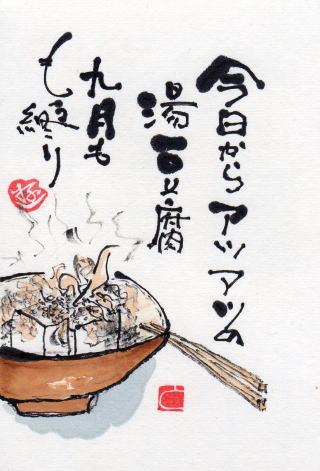 今日からアツアツの
湯豆腐
九月も
もう終り